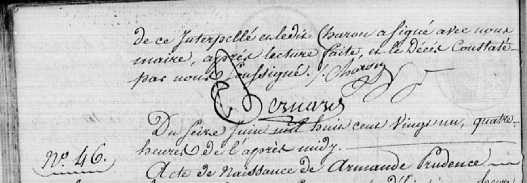 de ce Interpellé en ledit Charon a signé avec nous
maire, après lecture faite, et le Décès Constaté
par nous soussigné. / Charon
Bernard
Du seize Juin mil huit cent vingt un, quatre
heures de l'après midy.
N.º 46.
Acte de Naissance de Armande Prudence